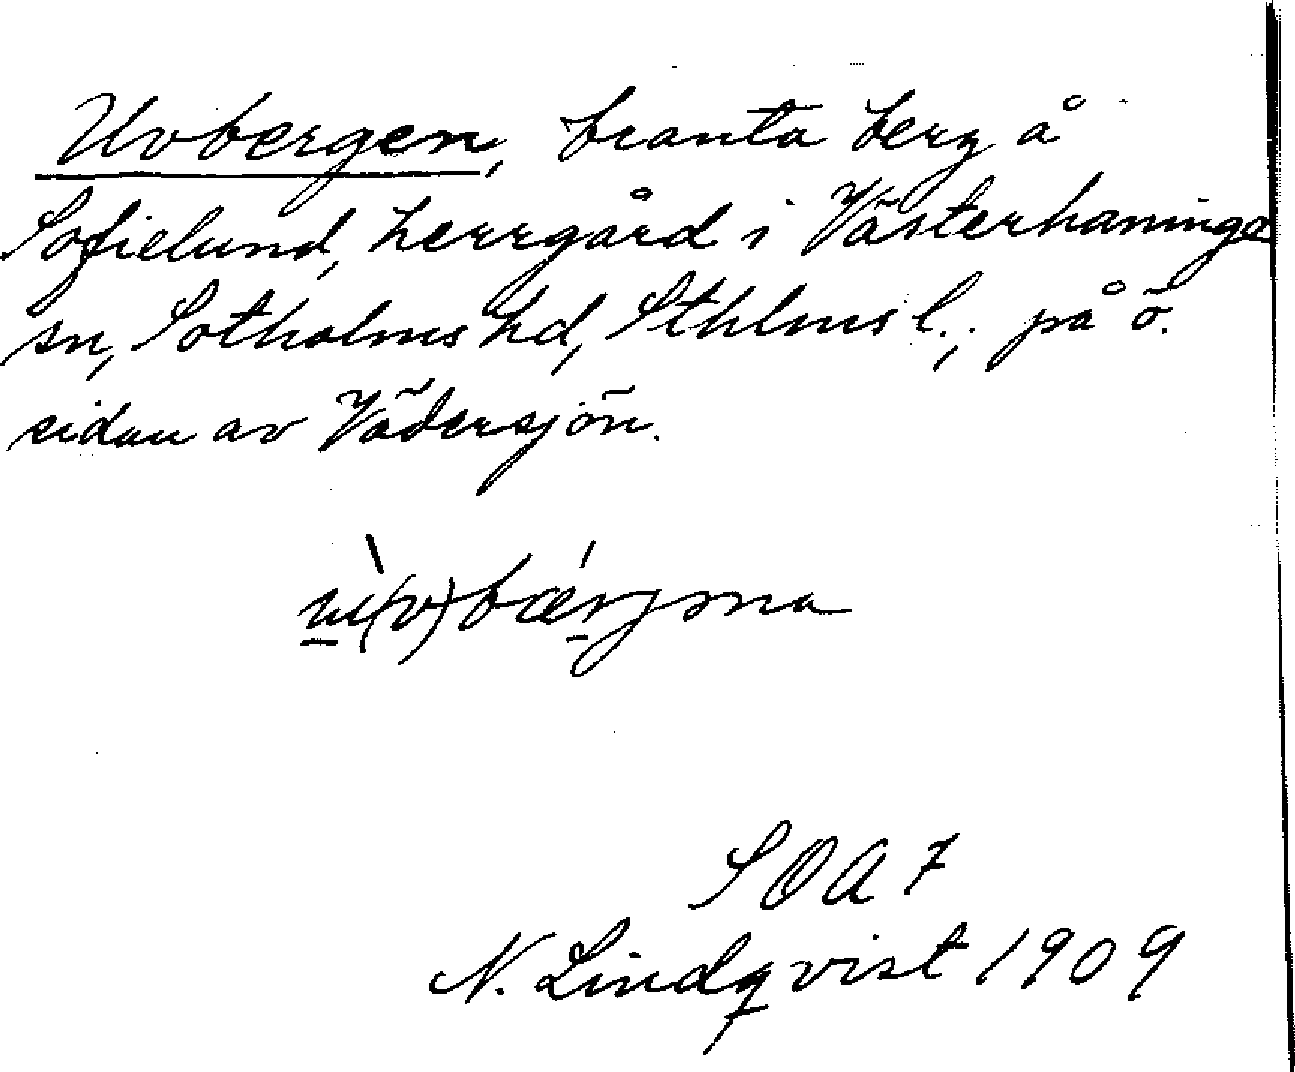 Uvbergen, branta berg å
Sofielund, herrgård i Västerhaninge
sn, Sotholms hd, Sthlms l.; på ö.
sidan av Vädersjön.
ù(v)bǽrjəna
SOA 7
N. Lindqvist 1909